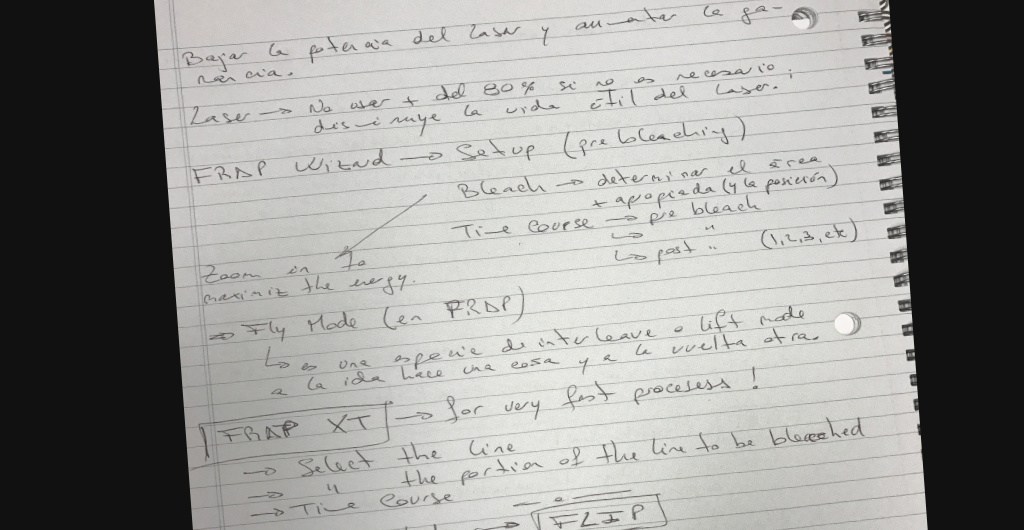 Bajar la potencia del laser y aumentar la ga-
nancia.
Laser → No usar + del 80% si no es necesario;
disminuye la vida útil del laser.
FRAP Wizard → Setup (pre bleaching)
Bleach → determinar el área
+ apropiada (y la posición)
Time Course → pre bleach
↳
↳ post " (1,2,3, etc)
Zoom in to
maximiz the energy.
⇒ Fly Mode (en FRAP)
↳ es una especie de interleave o lift mode
a la ida hace una cosa y a la vuelta otra.
FRAP XT → for very fast procesess!
→ Select the line
→ " the portion of the line to be bleached
→ Time Course
→ FLIP